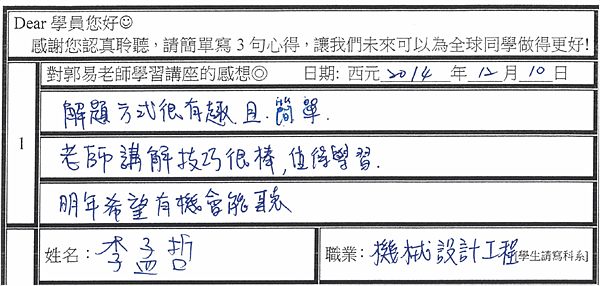 Dear 學員您好☺
感謝您認真聆聽，請簡單寫 3 句心得，讓我們未來可以為全球同學做得更好!
1
對郭易老師學習講座的感想◎ 日期: 西元 2014 年 12 月 10 日
解題方式很有趣且.簡單.
老師講解技巧很棒,值得學習.
明年希望有機會能聽
姓名：李孟哲 職業：機械設計工程[學生請寫科系]